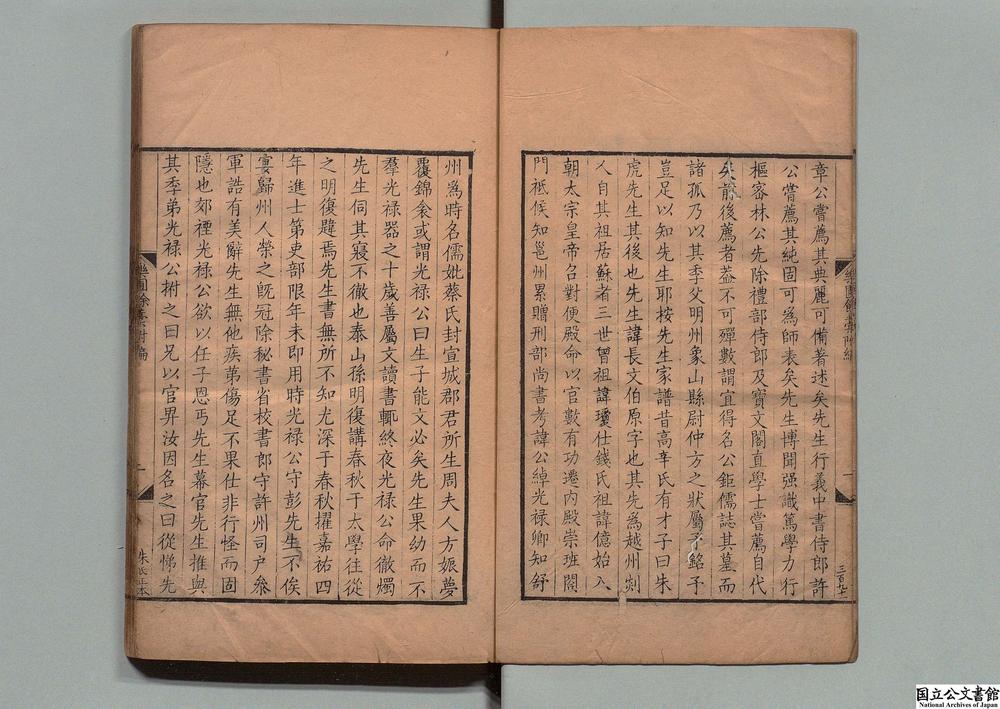 章公嘗薦其典麗可備著述矣先生行義中書侍郎許
公嘗薦其純固可爲師表矣先生博聞强識篤學力行
樞密林公先除禮部侍郎及寶文閣直學士嘗薦自代
矣前後薦者葢不可殫數謂宜得名公鉅儒誌其墓而
諸孤乃以其季父明州象山縣尉仲方之狀屬予銘予
豈足以知先生耶按先生家譜昔高辛氏有才子曰朱
虎先生其後也先生諱長文伯原字也其先爲越州剡
人自其祖居蘇者三世曾祖諱瓊仕錢氏祖諱億始入
朝太宗皇帝召對便殿命以官數有功遷内殿崇班閤
門祗候知邕州累贈刑部尚書考諱公綽光禄卿知舒
州爲時名儒妣蔡氏封宣城郡君所生周夫人方娠夢
覆錦衾或謂光禄公曰生子能文必矣先生果幼而不
羣光禄器之十歲善屬文讀書輒終夜光禄公命徹燭
先生伺其寢不徹也泰山孫明復講春秋于太學往從
之明復韙焉先生書無所不知尤深于春秋擢嘉祐四
年進士第吏部限年未即用時光禄公守彭先生不俟
宴歸州人榮之旣冠除秘書省校書郎守許州司户叅
軍誥有美辭先生無他疾弟傷足不果仕非行怪而固
隱也郊禋光禄公欲以任子恩丐先生幕官先生推與
其季弟光禄公拊之曰兄以官昇汝因名之曰從悌先
樂圃餘藁附編
一
朱氏本
国立公文書館
National Archives of Japan